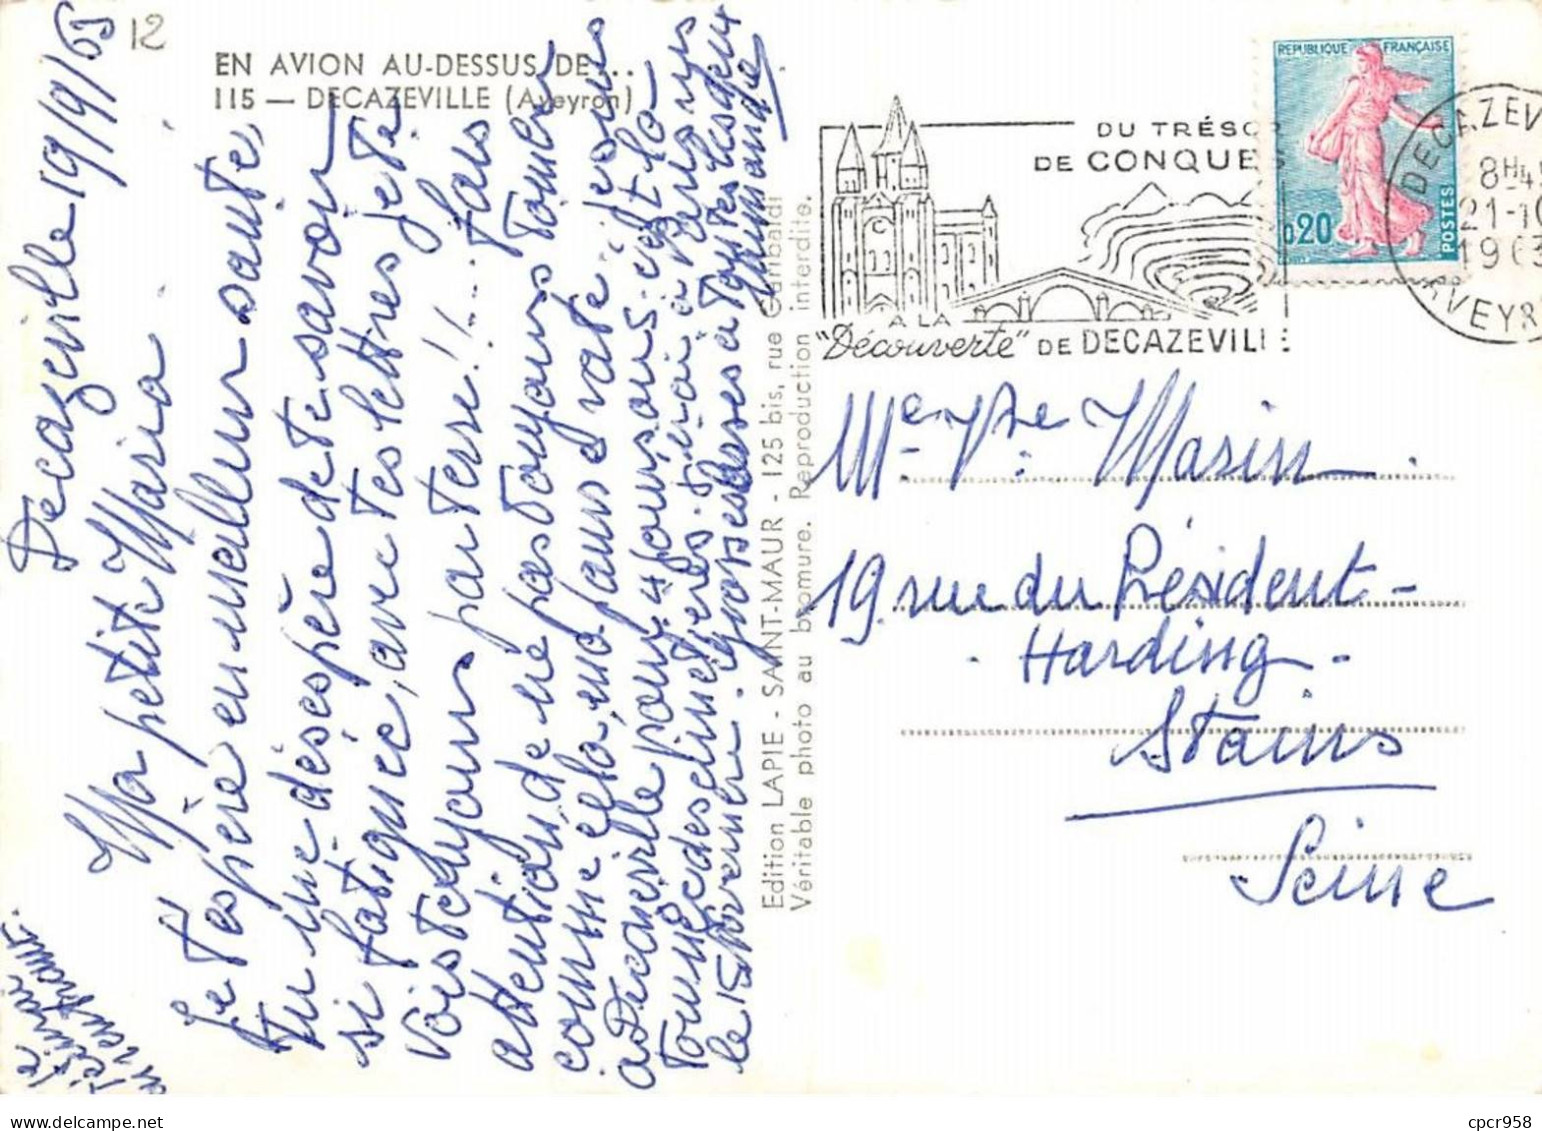 12
EN AVION AU-DESSUS DE...
115 — DECAZEVILLE (Aveyron)
Decazeville 19/9/63
Ma petite Maria
Je t'espère en meilleur santé,
Tu me désespère de te savoir
si fatiguée, avec tes lettres je te
vois toujours par terre!!... fais
attention, de ne pas toujours tomber
comme cela, ma pauvre vate. je suis
a Decazeville pour 4 jours, ensuite la
Tournée des cimetières. serai à
le 15 novembre. grosses bises à toutes les deux
Edition LAPIE - SAINT-MAUR - 125 bis, rue Garibaldi
Véritable photo au bromure. Reproduction interdite.
DU TRÉSOR
DE CONQUES
A LA
"Découverte" DE DECAZEVILLE
REPUBLIQUE FRANÇAISE
0,20
POSTES
DECAZEV
8H45
21-10
1963
AVEYR
Me Vve Marin
19 rue du Président-
- Harding -
Stains
Seine
cpcr958